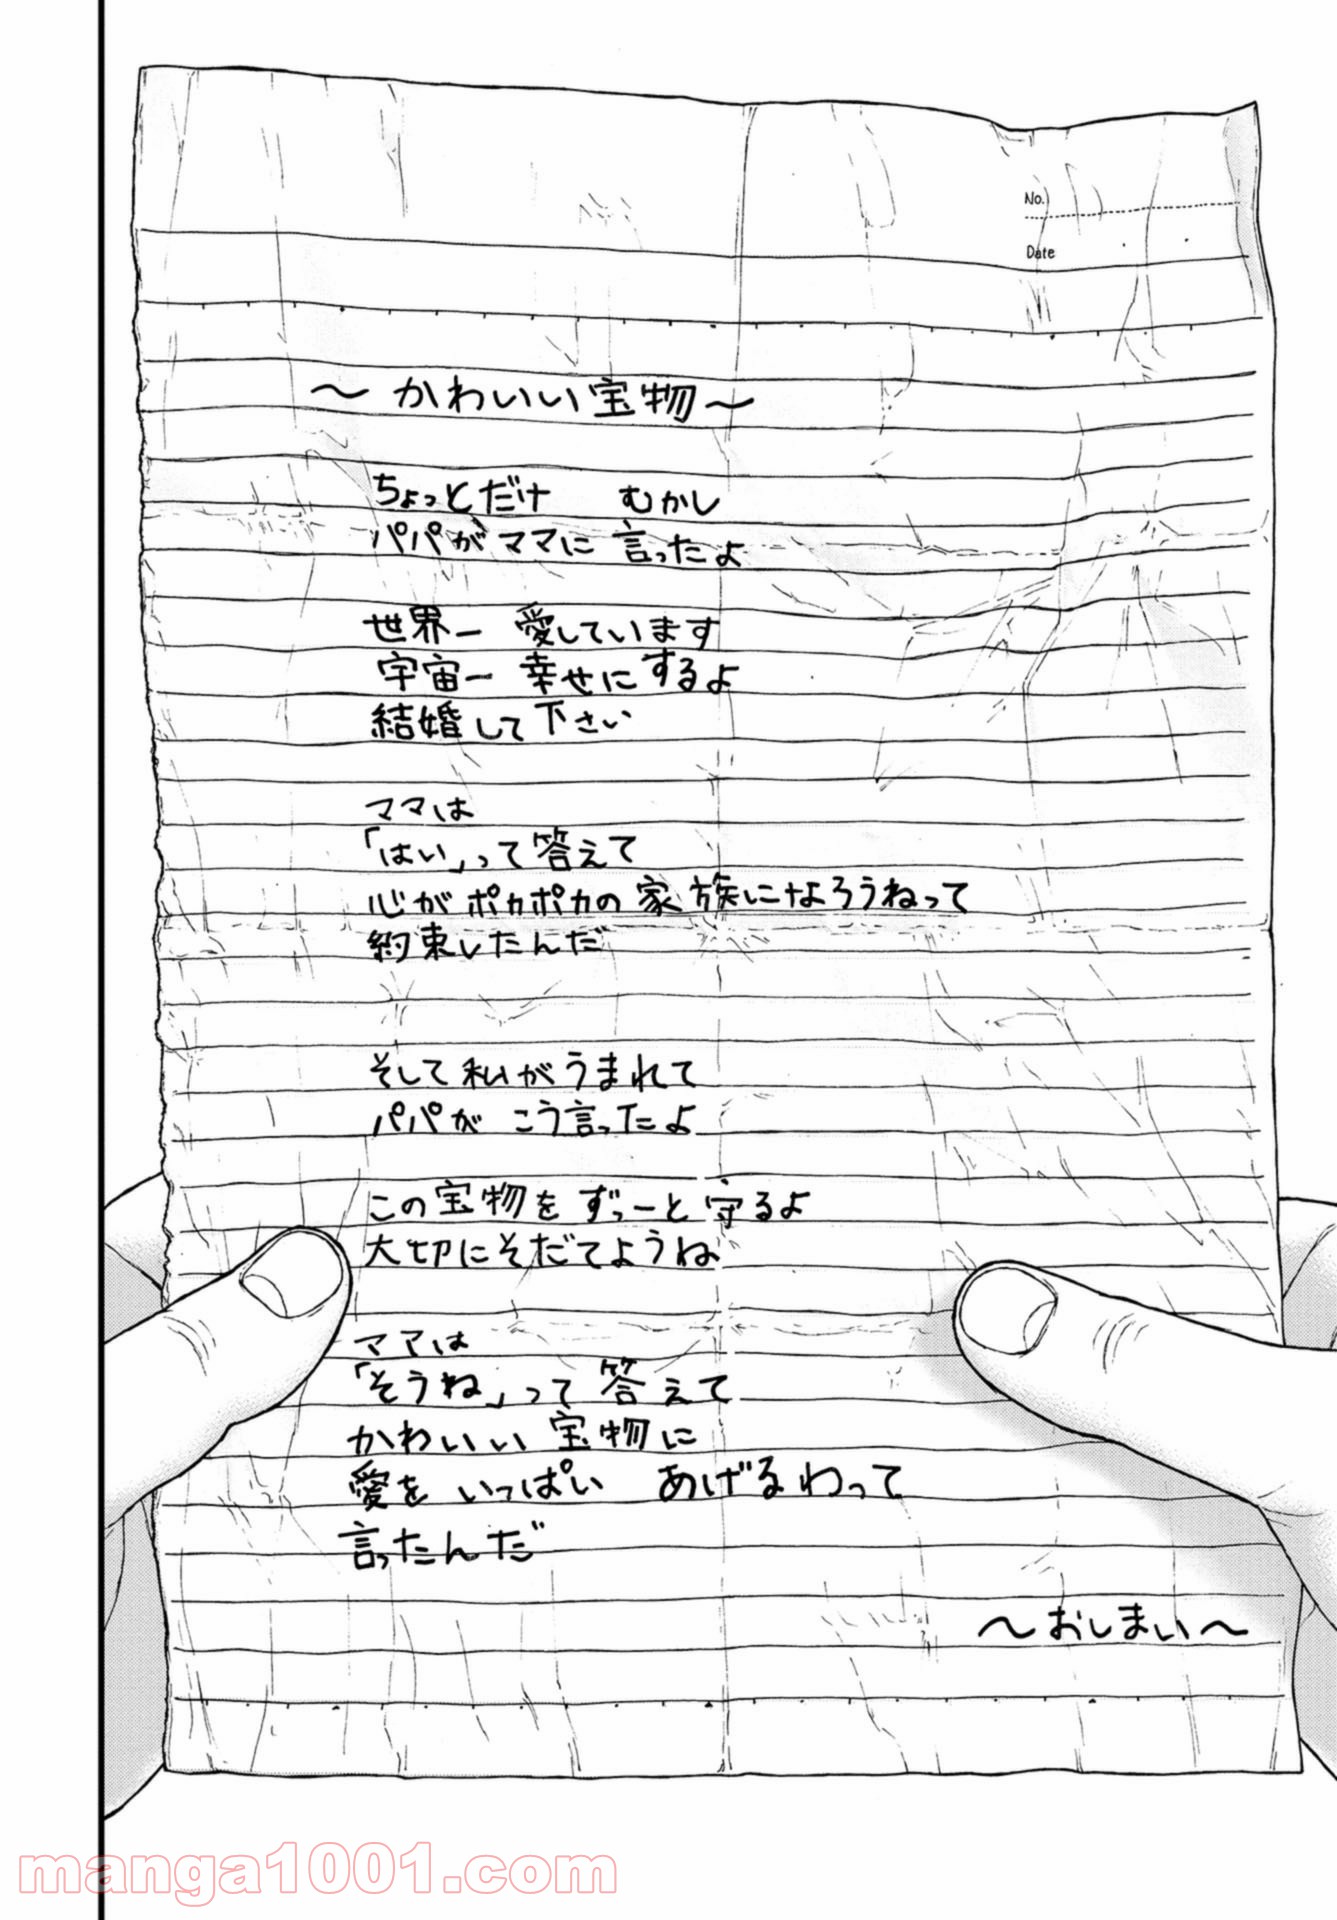 No.
Date
～かわいい宝物～
ちょっとだけ　むかし
パパがママに 言ったよ
世界一 愛しています
宇宙一 幸せにするよ
結婚して下さい
ママは
「はい」って答えて
心がポカポカの家族になろうねって
約束したんだ
そして私がうまれて
パパが こう言ったよ
この宝物を ずっーと守るよ
大切にそだてようね
ママは
「そうね」って 答えて
かわいい 宝物に
愛を いっぱい　あげるわって
言ったんだ
～おしまい～
manga1001.com